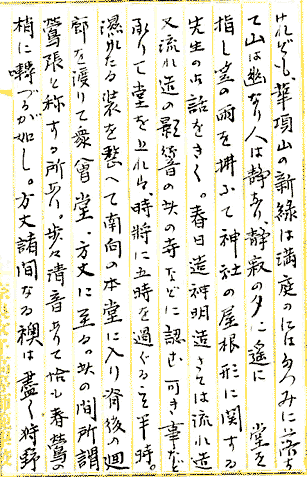 れども華頂山の新緑は満庭のにはたづみに落ち
て山は幽なり人は静なり静寂の夕に遥に 堂を
指し室の雨を拂ふて神社の屋根形に関する
先生の御話をきく。春日造神明造さては流れ造
又流れ造の影響の此の寺などに認む可き事など
承りて堂を上れば、時將に五時を過ぐること半時。
濡れたる装を整へて南向の本堂に入り脊後の廻
廊を渡りて衆會堂、方丈に至る。此の間所謂
鶯張と称する所あり。歩々清音ありて恰も春鶯の
梢に囀づるが如し。方丈諸間なる襖は盡く狩野